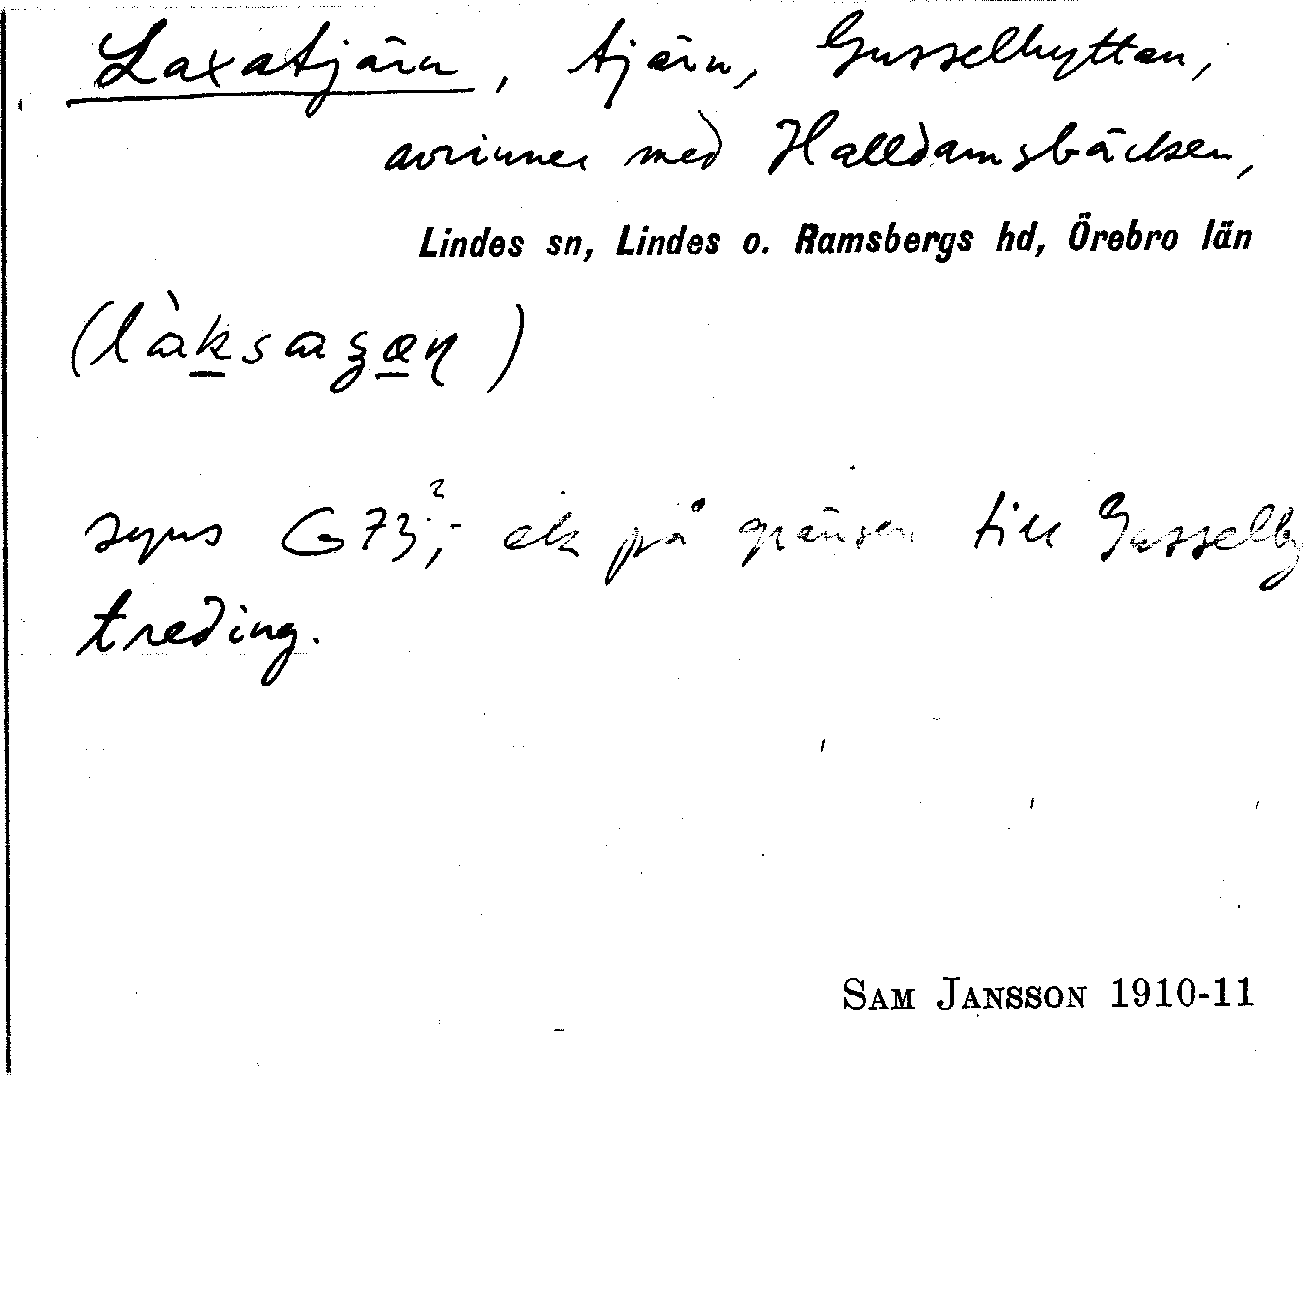 Laxatjärn, tjärn, Gusselhyttan,
avrinner med Halldamsbäcken,
Lindes sn, Lindes o. Ramsbergs hd, Örebro län
(làksaʒæɳ)
syns G73², - ek på gränsen till Gusselby
treding.
SAM JANSSON 1910-11